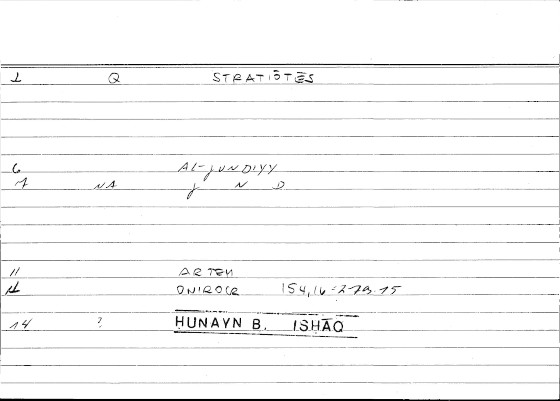 1 Q STRATIŌTĒS
6 AL-JUNDIYY
7 NA J N D
11 ARTEM
12 ONIROCR 154,16 = 279.15
14 ? HUNAYN B. ISHĀQ